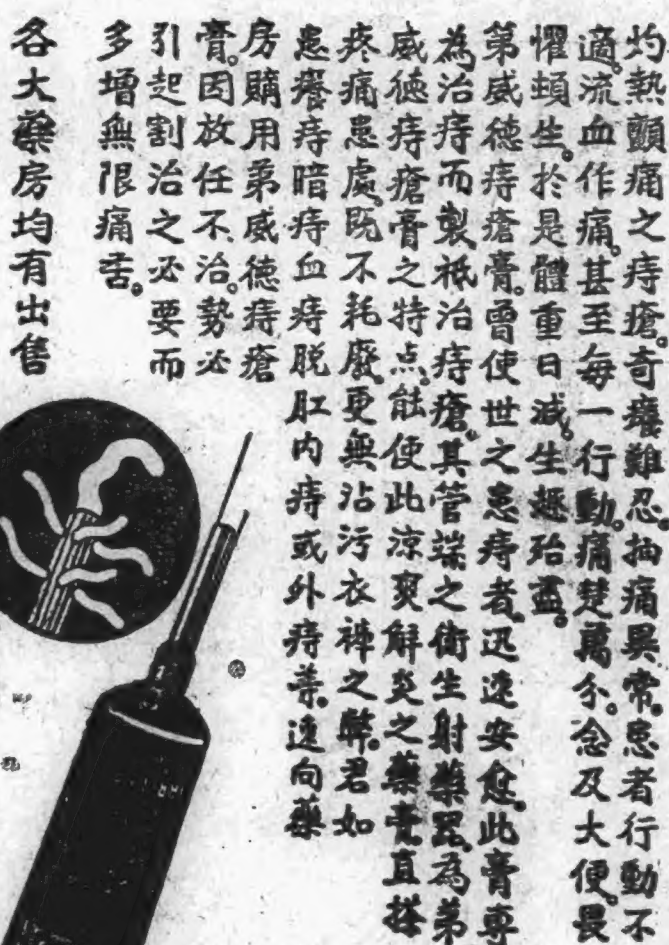 灼熱顫痛之痔瘡。奇癢難忍。抽痛異常。患者行動不
適。流血作痛。甚至每一行動。痛楚萬分。念及大便。畏
懼頓生。於是體重日減。生趣殆盡。
第威德痔瘡膏。曾使世之患痔者。迅速安愈。此膏專
為治痔而製。祇治痔瘡。其管端之衛生射藥器。為弟
威德痔瘡膏之特点。能使此涼爽解炎之藥膏。直搽
疼痛患處。既不耗廢。更無沾污衣褲之弊。君如
患癢痔暗痔血痔脱肛内痔或外痔等。速向藥
房購用弟威德痔瘡
膏。因放任不治。勢必
引起割治之必要而
多增無限痛苦。
各大藥房均有出售